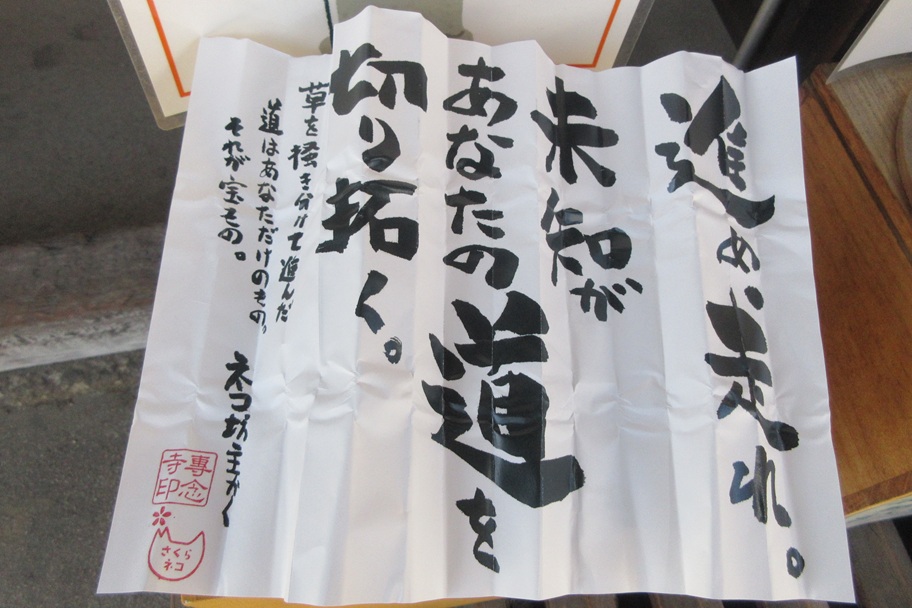 進め走れ。
未知が
あなたの道を
切り拓く。
草を掻き分けて進んだ
道はあなただけのもの。
それが宝もの。
ネコ坊主がく
専念
寺印
さくら
ネコ